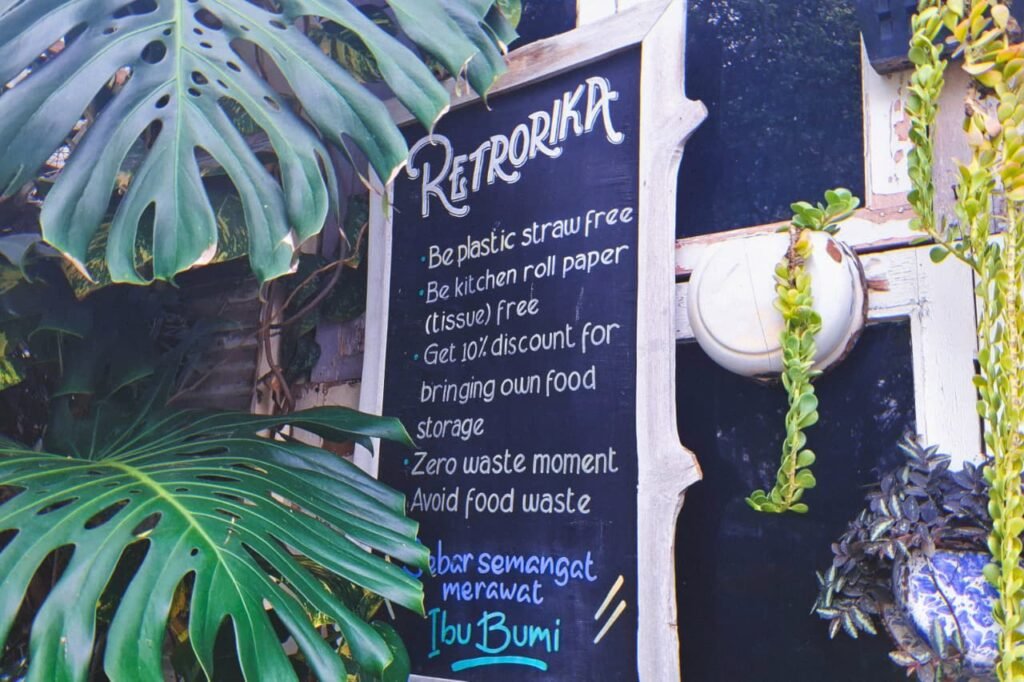 RETRORIKA
· Be plastic straw free
· Be kitchen roll paper
(tissue) free
· Get 10% discount for
bringing own food
storage
· Zero waste moment
Avoid food waste
semangat
merawat
Ibu Bumi